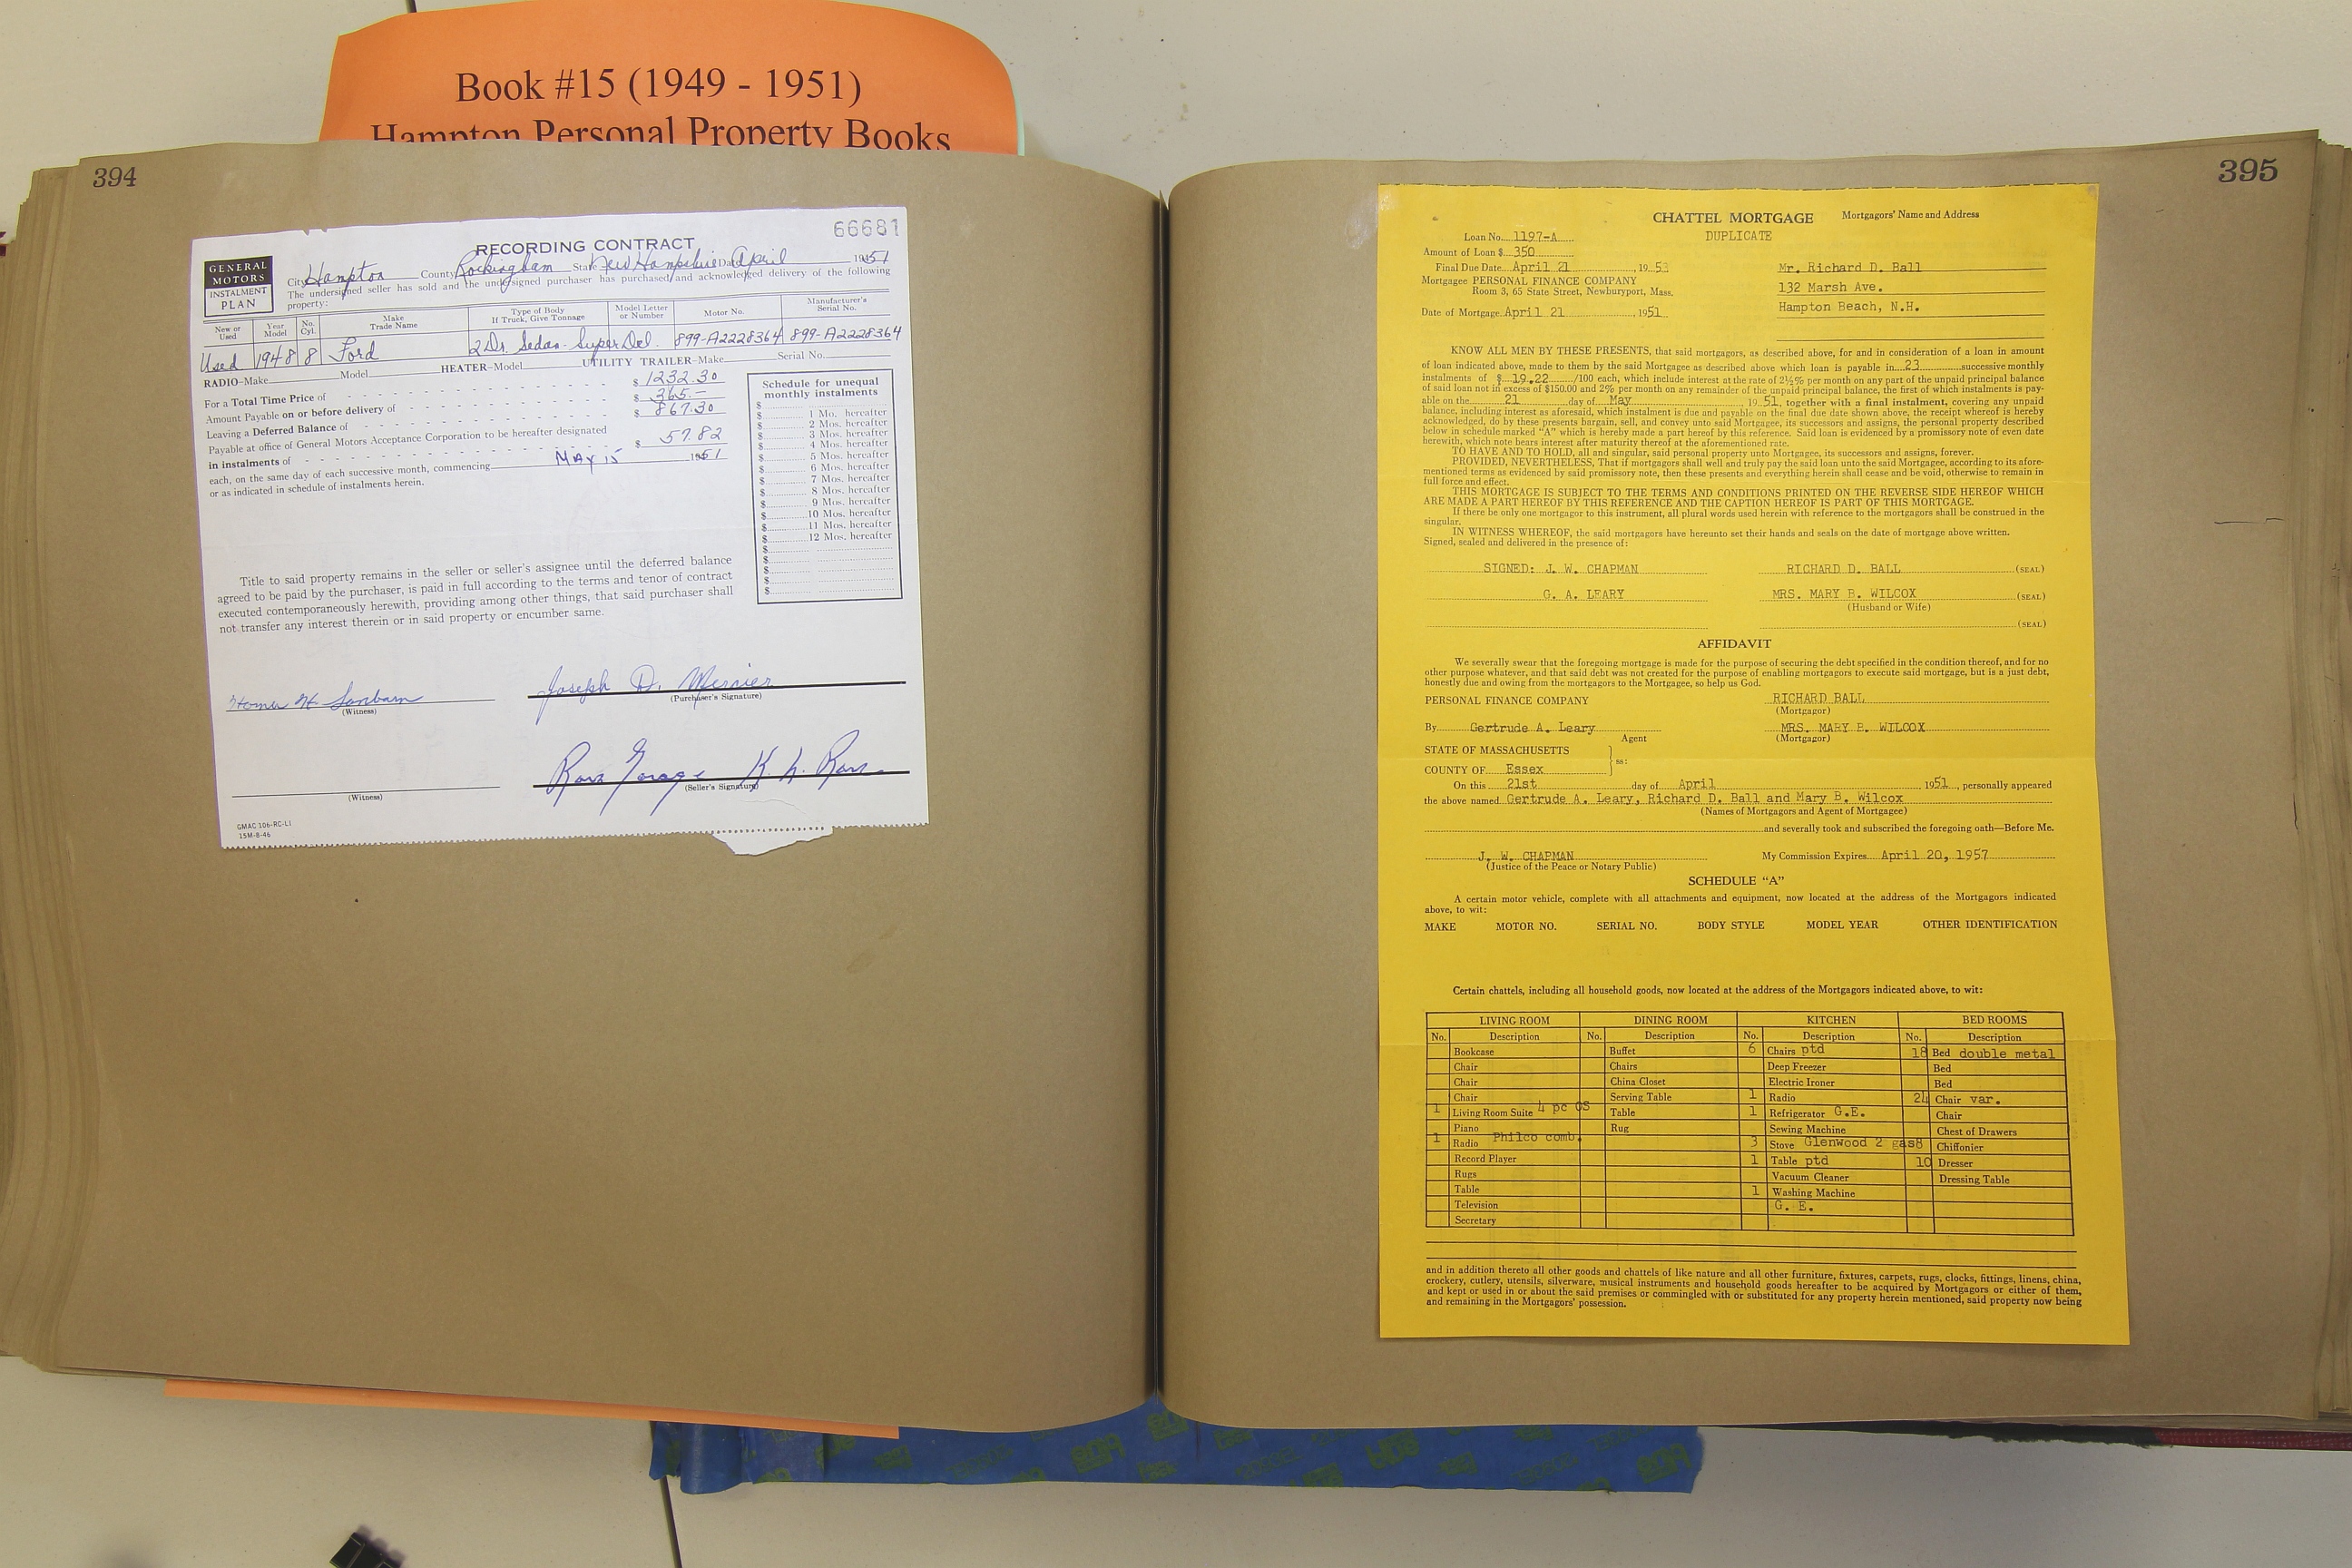 Book #15 (1949 - 1951)
Hampton Personal Property Books
394
66681
RECORDING CONTRACT
GENERAL
MOTORS
INSTALMENT
PLAN
City Hampton County Rockingham State New Hampshire Date April 1951
The undersigned seller has sold and the undersigned purchaser has purchased and acknowledged delivery of the following
property:
New or Used Year Model No. Cyl. Make Trade Name Type of Body If Truck, Give Tonnage Model Letter or Number Motor No. Manufacturer's Serial No.
Used 1948 8 Ford 2 Dr. Sedan - Super Del. 899-A2228364 899-A2228364
RADIO-Make Model HEATER-Model UTILITY TRAILER-Make Serial No.
For a Total Time Price of $ 1232.30
Amount Payable on or before delivery of $ 365.-
Leaving a Deferred Balance of $ 867.30
Payable at office of General Motors Acceptance Corporation to be hereafter designated
in instalments of $ 57.82
each, on the same day of each successive month, commencing MAY 15 1951
or as indicated in schedule of instalments herein.
Schedule for unequal
monthly instalments
$
$ 1 Mo. hereafter
$ 2 Mos. hereafter
$ 3 Mos. hereafter
$ 4 Mos. hereafter
$ 5 Mos. hereafter
$ 6 Mos. hereafter
$ 7 Mos. hereafter
$ 8 Mos. hereafter
$ 9 Mos. hereafter
$ 10 Mos. hereafter
$ 11 Mos. hereafter
$ 12 Mos. hereafter
$
$
$
$
$
Title to said property remains in the seller or seller's assignee until the deferred balance
agreed to be paid by the purchaser, is paid in full according to the terms and tenor of contract
executed contemporaneously herewith, providing among other things, that said purchaser shall
not transfer any interest therein or in said property or encumber same.
Homer H. Sanborn
(Witness)
Joseph D. Mercier
(Purchaser's Signature)
Ross Garage K. L. Ross
(Seller's Signature)
(Witness)
GMAC 106-RC-L1
15M-8-46
395
CHATTEL MORTGAGE Mortgagors' Name and Address
DUPLICATE
Loan No. 1197-A
Amount of Loan $ 350
Final Due Date April 21, 1953
Mortgagee PERSONAL FINANCE COMPANY
Room 3, 65 State Street, Newburyport, Mass.
Date of Mortgage April 21, 1951
Mr. Richard D. Ball
132 Marsh Ave.
Hampton Beach, N.H.
KNOW ALL MEN BY THESE PRESENTS, that said mortgagors, as described above, for and in consideration of a loan in amount
of loan indicated above, made to them by the said Mortgagee as described above which loan is payable in 23 successive monthly
instalments of $ 19.22 /100 each, which include interest at the rate of 2½% per month on any part of the unpaid principal balance
of said loan not in excess of $150.00 and 2% per month on any remainder of the unpaid principal balance, the first of which instalments is pay-
able on the 21 day of May, 1951, together with a final instalment, covering any unpaid
balance, including interest as aforesaid, which instalment is due and payable on the final due date shown above, the receipt whereof is hereby
acknowledged, do by these presents bargain, sell, and convey unto said Mortgagee, its successors and assigns, the personal property described
below in schedule marked "A" which is hereby made a part hereof by this reference. Said loan is evidenced by a promissory note of even date
herewith, which note bears interest after maturity thereof at the aforementioned rate.
TO HAVE AND TO HOLD, all and singular, said personal property unto Mortgagee, its successors and assigns, forever.
PROVIDED, NEVERTHELESS, That if mortgagors shall well and truly pay the said loan unto the said Mortgagee, according to its afore-
mentioned terms as evidenced by said promissory note, then these presents and everything herein shall cease and be void, otherwise to remain in
full force and effect.
THIS MORTGAGE IS SUBJECT TO THE TERMS AND CONDITIONS PRINTED ON THE REVERSE SIDE HEREOF WHICH
ARE MADE A PART HEREOF BY THIS REFERENCE AND THE CAPTION HEREOF IS PART OF THIS MORTGAGE.
If there be only one mortgagor to this instrument, all plural words used herein with reference to the mortgagors shall be construed in the
singular.
IN WITNESS WHEREOF, the said mortgagors have hereunto set their hands and seals on the date of mortgage above written.
Signed, sealed and delivered in the presence of:
SIGNED: J. W. CHAPMAN RICHARD D. BALL (SEAL)
G. A. LEARY MRS. MARY B. WILCOX (SEAL)
(Husband or Wife)
(SEAL)
AFFIDAVIT
We severally swear that the foregoing mortgage is made for the purpose of securing the debt specified in the condition thereof, and for no
other purpose whatever, and that said debt was not created for the purpose of enabling mortgagors to execute said mortgage, but is a just debt,
honestly due and owing from the mortgagors to the Mortgagee, so help us God.
PERSONAL FINANCE COMPANY RICHARD BALL
(Mortgagor)
By Gertrude A. Leary MRS. MARY B. WILCOX
Agent (Mortgagor)
STATE OF MASSACHUSETTS
ss:
COUNTY OF Essex
On this 21st day of April, 1951, personally appeared
the above named Gertrude A. Leary, Richard D. Ball and Mary B. Wilcox
(Names of Mortgagors and Agent of Mortgagee)
and severally took and subscribed the foregoing oath—Before Me.
J. W. CHAPMAN My Commission Expires April 20, 1957
(Justice of the Peace or Notary Public)
SCHEDULE "A"
A certain motor vehicle, complete with all attachments and equipment, now located at the address of the Mortgagors indicated
above, to wit:
MAKE MOTOR NO. SERIAL NO. BODY STYLE MODEL YEAR OTHER IDENTIFICATION
Certain chattels, including all household goods, now located at the address of the Mortgagors indicated above, to wit:
LIVING ROOM DINING ROOM KITCHEN BED ROOMS
No. Description No. Description No. Description No. Description
Bookcase Buffet 6 Chairs ptd 18 Bed double metal
Chair Chairs Deep Freezer Bed
Chair China Closet Electric Ironer Bed
Chair Serving Table 1 Radio 24 Chair var.
1 Living Room Suite 4 pc OS Table 1 Refrigerator G.E. Chair
Piano Rug Sewing Machine Chest of Drawers
1 Radio Philco comb. 3 Stove Glenwood 2 gas 8 Chiffonier
Record Player 1 Table ptd 10 Dresser
Rugs Vacuum Cleaner Dressing Table
Table 1 Washing Machine
Television G. E.
Secretary
and in addition thereto all other goods and chattels of like nature and all other furniture, fixtures, carpets, rugs, clocks, fittings, linens, china,
crockery, cutlery, utensils, silverware, musical instruments and household goods hereafter to be acquired by Mortgagors or either of them,
and kept or used in or about the said premises or commingled with or substituted for any property herein mentioned, said property now being
and remaining in the Mortgagors' possession.